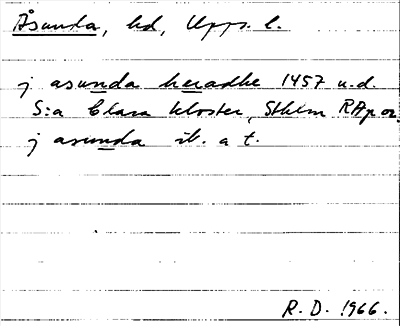 Åsunda, hd, Upps. l.
j asunda heradhe 1457 u.d.
S:a Clara kloster, Sthlm RAp or.
j asunda ib. a t.
R. D. 1966.